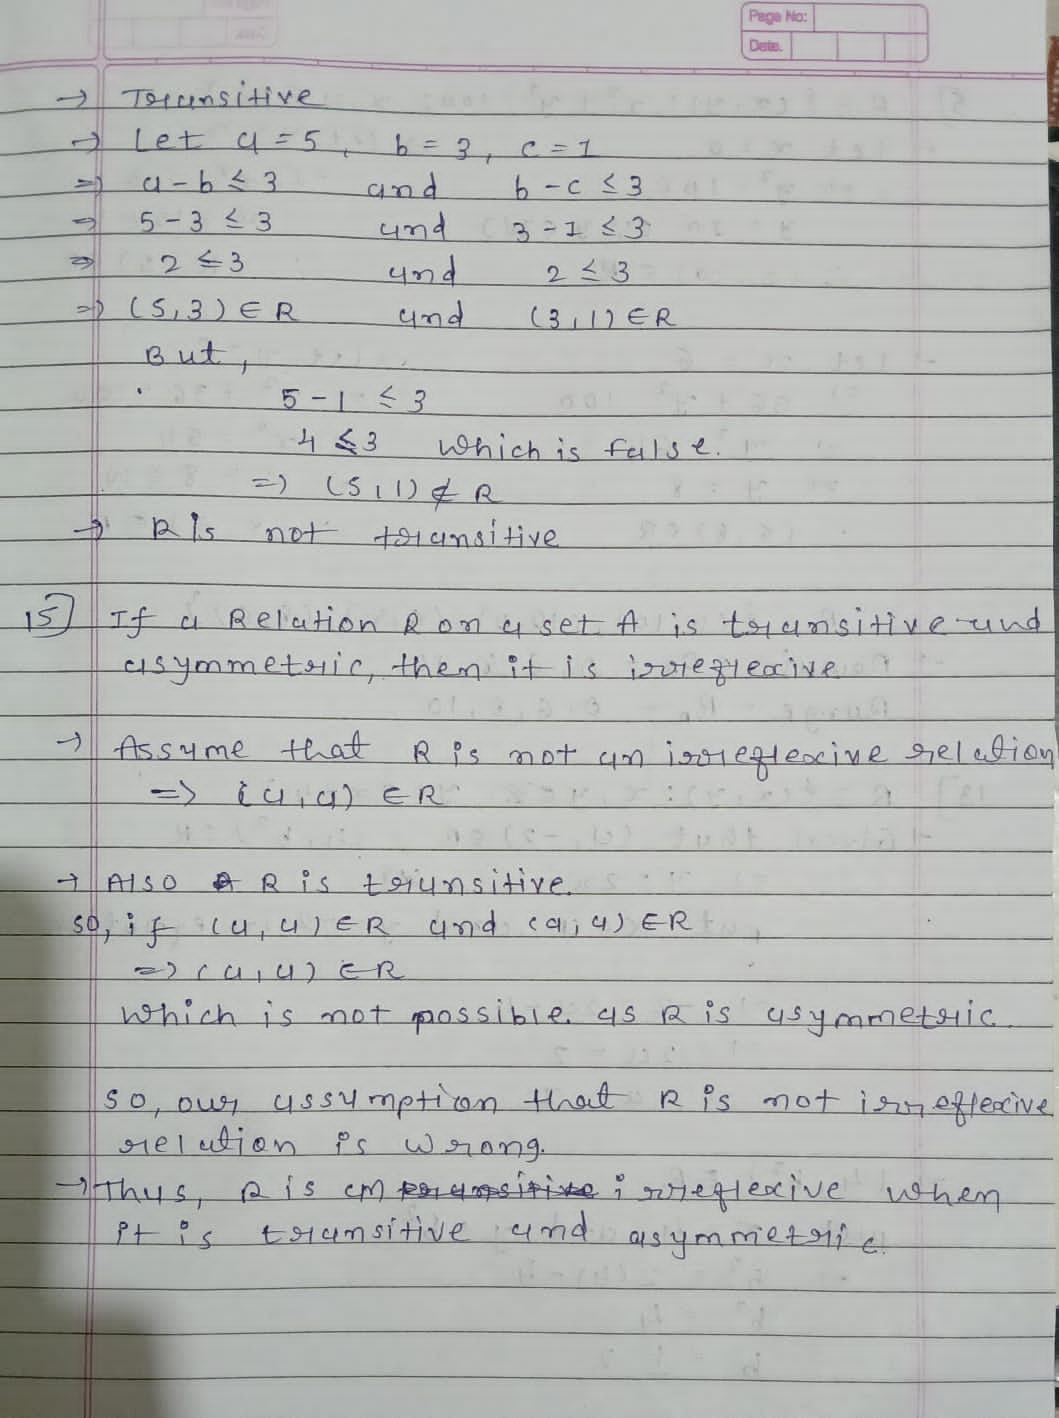 Page No:
Date.
→ Transitive
→ Let a = 5, b = 3, c = 1
⇒ a - b ≤ 3 and b - c ≤ 3
⇒ 5 - 3 ≤ 3 and 3 - 1 ≤ 3
⇒ 2 ≤ 3 and 2 ≤ 3
⇒ (5,3) ∈ R and (3,1) ∈ R
But,
5 - 1 ≤ 3
4 ≤ 3 which is false.
⇒ (5,1) ∉ R
→ R is not transitive
15] If a Relation R on a set A is transitive and
asymmetric, then it is irreflexive
→ Assume that R is not an irreflexive relation
=> (a,a) ∈ R
→ Also R is transitive.
so, if (a,a) ∈ R and (a,a) ∈ R
=> (a,a) ∈ R
which is not possible. as R is asymmetric.
so, our assumption that R is not irreflexive
relation is wrong.
→ Thus, R is an transitive irreflexive when
it is transitive and asymmetric.